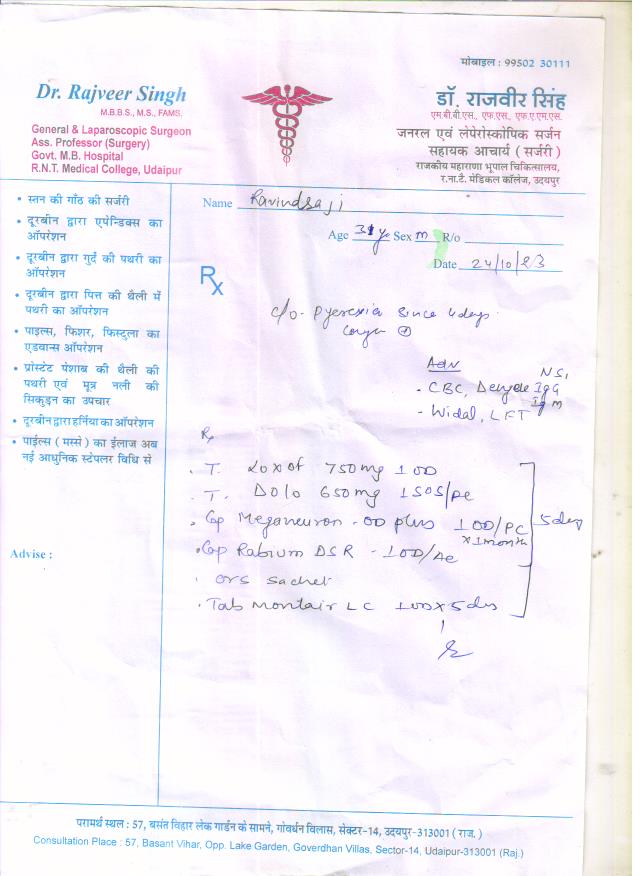 मोबाइल : 99502 30111
Dr. Rajveer Singh
M.B.B.S., M.S., FAMS,
General & Laparoscopic Surgeon
Ass. Professor (Surgery)
Govt. M.B. Hospital
R.N.T. Medical College, Udaipur
डॉ. राजवीर सिंह
एम.बी.बी.एस., एफ.एस., एफ.ए.एम.एस.
जनरल एवं लेपेरोस्कोपिक सर्जन
सहायक आचार्य ( सर्जरी )
राजकीय महाराणा भूपाल चिकित्सालय,
र.ना.टै. मेडिकल कॉलेज, उदयपुर
• स्तन की गाँठ की सर्जरी
• दूरबीन द्वारा एपेन्डिक्स का
ऑपरेशन
• दूरबीन द्वारा गुर्दे की पथरी का
ऑपरेशन
• दूरबीन द्वारा पित्त की थैली में
पथरी का ऑपरेशन
• पाइल्स, फिशर, फिस्टुला का
एडवान्स ऑपरेशन
• प्रोस्टेट पेशाब की थैली की
पथरी एवं मूत्र नली की
सिकुड़न का उपचार
• दूरबीन द्वारा हर्निया का ऑपरेशन
• पाईल्स ( मस्से ) का ईलाज अब
नई आधुनिक स्टेपलर विधि से
Advise :
Name Ravindraji
Age 31 y. Sex m R/o
Date 24/10/23
Rx
c/o - Pyerexia since 4 days
Adv
NS1
- CBC, Dengue IgG
IgM
- Widal, LFT
Rx
. T. Zoxof 750mg 1 OD
. T. Dolo 650mg 1 SOS/pc
. Cap Meganeuron - OD plus 1 OD/PC
x 1 month
. Cap Rabium DSR - 1 OD/Ac
. ORS sachet
. Tab Montair LC 1 OD x 5 days
5 days
परामर्थ स्थल : 57, बसंत विहार लेक गार्डन के सामने, गोवर्धन विलास, सेक्टर-14, उदयपुर-313001 ( राज. )
Consultation Place : 57, Basant Vihar, Opp. Lake Garden, Goverdhan Villas, Sector-14, Udaipur-313001 (Raj.)